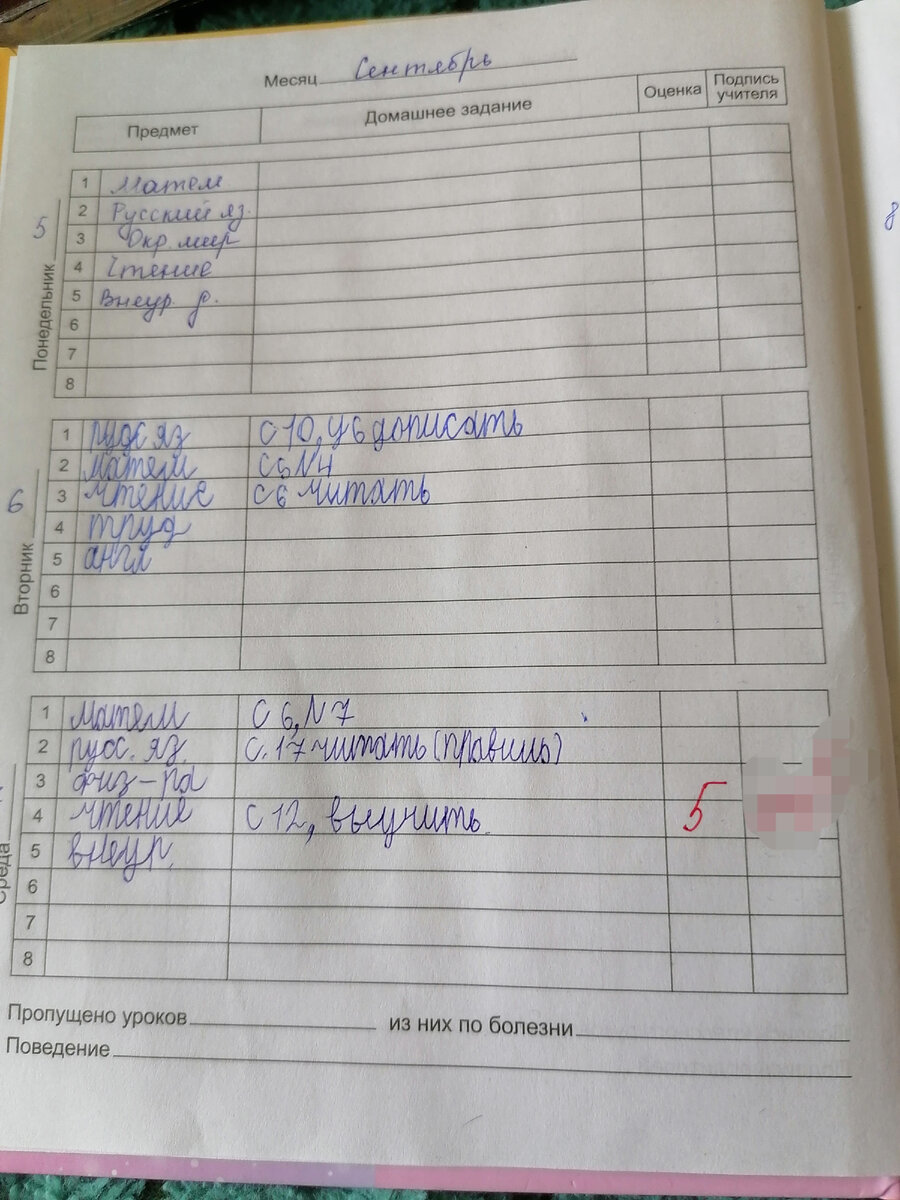 Месяц Сентябрь
Предмет Домашнее задание Оценка Подпись учителя
Понедельник 5
1 Матем
2 Русский яз.
3 Окр. мир
4 Чтение
5 Внеур. р.
6
7
8
Вторник 6
1 русс яз С 10, у 6 дописать
2 матем С 5 N4
3 чтение С 6 читать
4 труд
5 англ
6
7
8
Среда
1 матем С 6, N 7
2 русс. яз. С. 17 читать (правиль)
3 физ-ра
4 чтение С 12, выучить. 5
5 внеур.
6
7
8
Пропущено уроков из них по болезни
Поведение
8